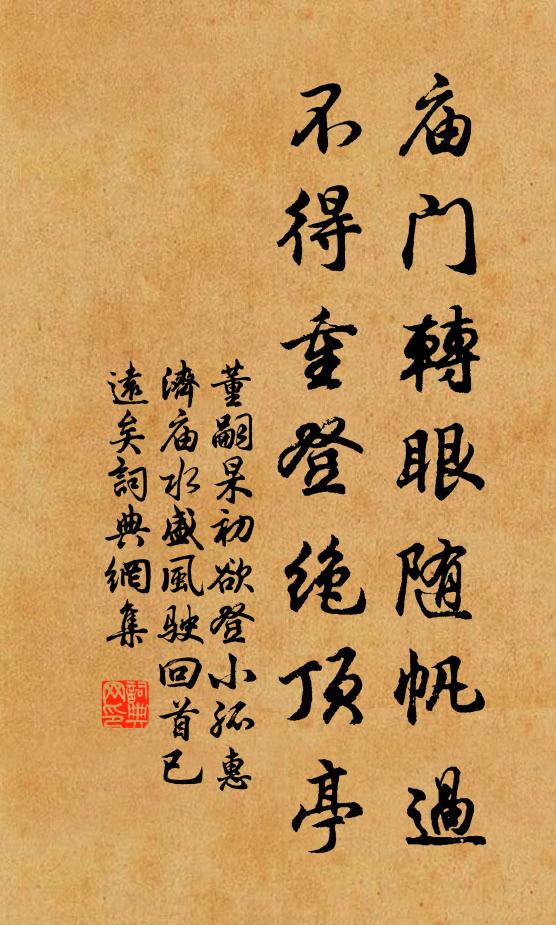 庙门轉眼随帆過
不得重登绝顶亭
董嗣杲初欲登小孤惠
濟庙水盛風駛回首已
遠矣詞典網集
詞典网印